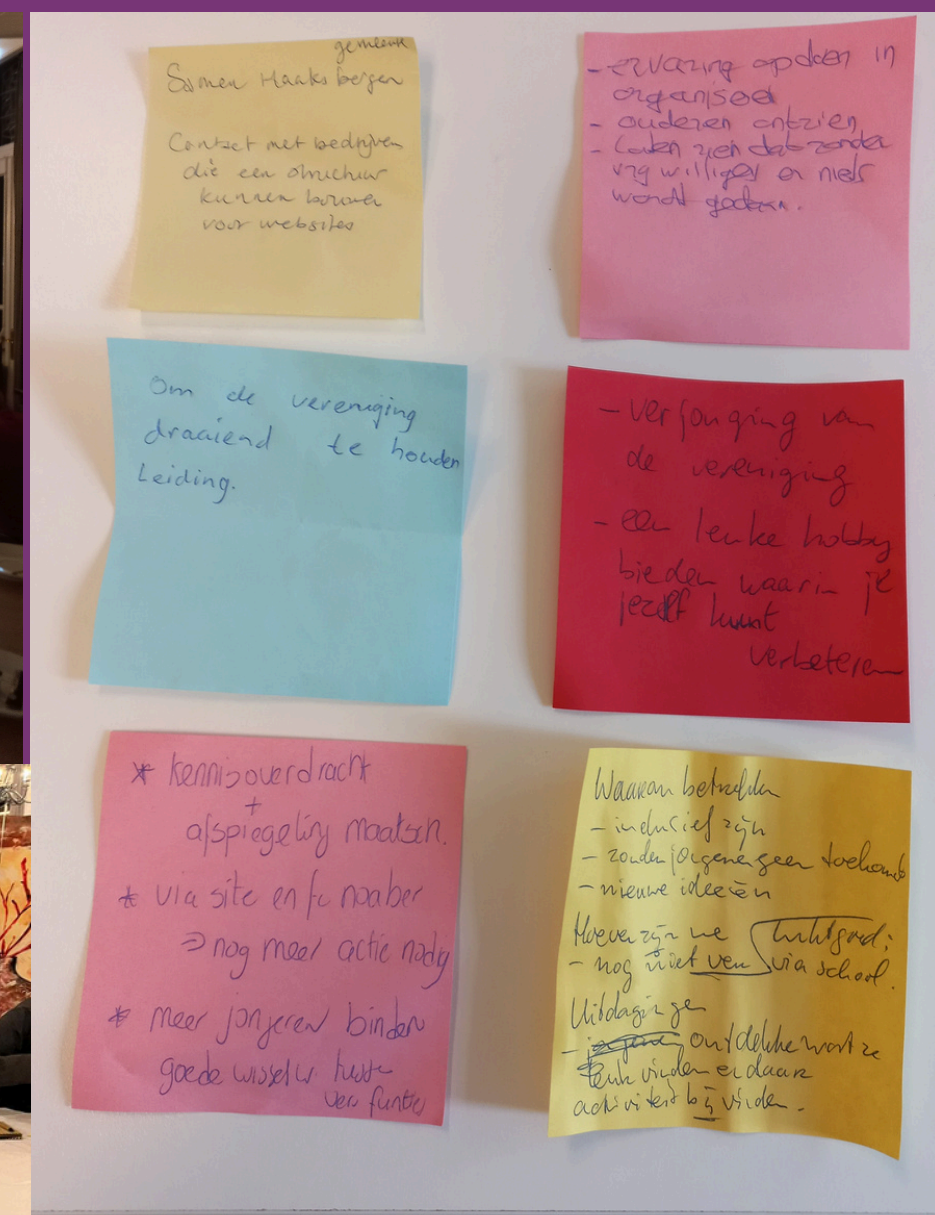 gemeente
Samen Haaksbergen
Contact met bedrijven
die een structuur
kunnen bouwen
voor websites
- ervaring opdoen in
organisee
- ouderen ontzien
- laten zien dat zonder
vrijwilliger er niets
wordt gedaan.
Om de vereniging
draaiend te houden
Leiding.
- verjonging van
de vereniging
- een leuke hobby
bieden waarin je
jezelf kunt
verbeteren
* kennisoverdracht
+
afspiegeling maatsch.
* via site en noaber
⇒ nog meer actie nodig
* meer jongeren binden
goede wissel
Waarom betrekken
- inclusief zijn
- zonder jongeren geen toekomst
- nieuwe ideeën
Hoever zijn we
- nog niet ver via school.
Uitdagingen
- ontdekken wat ze
leuk vinden en daar
activiteit bij vinden.